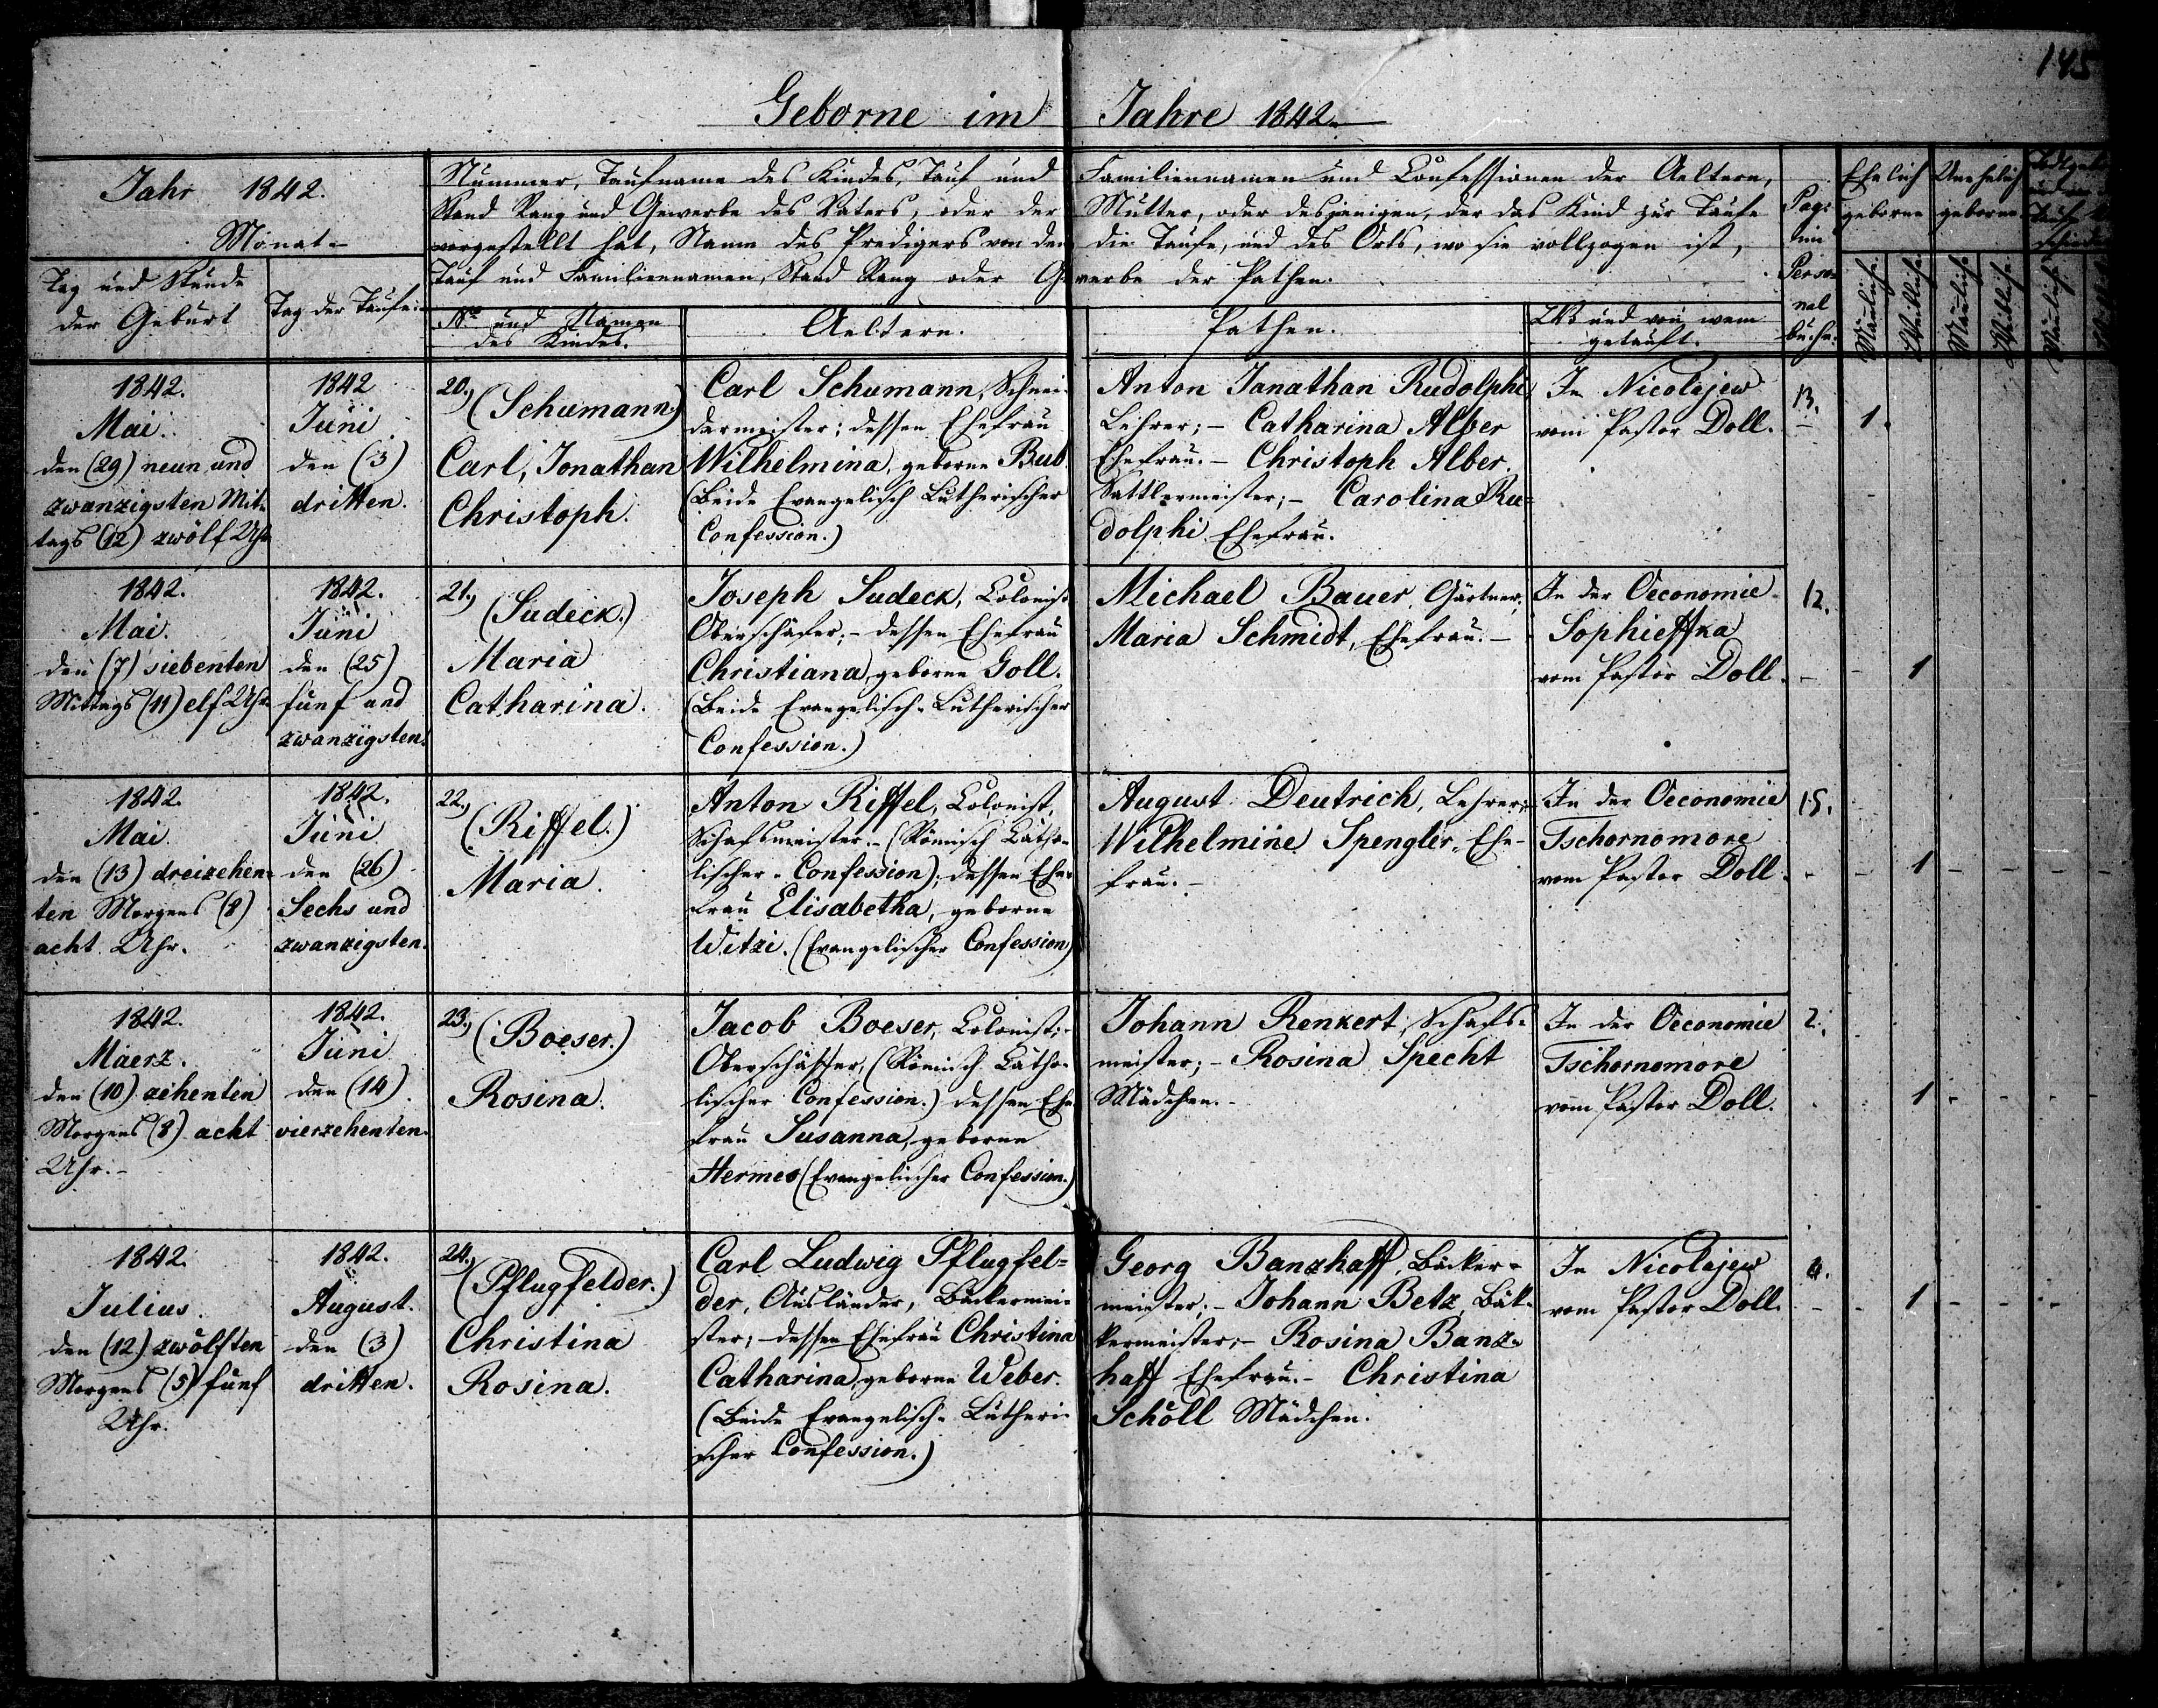 145
Geborne im Jahre 1842.
Jahr 1842.
Monat
Tag und Stunde
der Geburt
Tag der Taufe:
Nummer, Taufname des Kindes, Tauf und Familiennamen und Confessionen der Aeltern,
Stand Rang und Gewerbe des Vaters, oder der Mutter, oder desjenigen, der das Kind zur Taufe
vorgestellt hat, Namen des Predigers von dem die Taufe, und des Orts, wo sie vollzogen ist,
Tauf und Familiennamen, Stand Rang oder Gewerbe der Pathen.
No und Namen
des Kindes.
Aeltern.
Pathen.
Wo und von wem
getauft.
Pag:
im
Perso-
nal
buche.
Ehelich
geborne
Unehelich
geborne
Männlich.
Weiblich.
Männlich.
Weiblich.
Männlich
1842.
Mai.
den (29) neun und
zwanzigsten Mit-
tags (12) zwölf Uhr
1842
Juni
den (3)
dritten.
20.) (Schumann)
Carl, Jonathan
Christoph.
Carl Schumann, Schnei-
dermeister; dessen Ehefrau
Wilhelmina, geborne Bub.
(Beide Evangelisch Lutherischer
Confession.)
Anton Janathan Rudolphi
Lehrer; – Catharina Alber
Ehefrau. – Christoph Alber.
Sattlermeister; – Carolina Ru-
dolphi Ehefrau.
In Nicolajew
vom Pastor Doll.
13.
1.
1842.
Mai.
den (7) siebenten
Mittags (11) elf Uhr
1842.
Juni
den (25)
fünf und
zwanzigsten.
21.) (Sudeck.)
Maria
Catharina.
Joseph Sudeck, Colonist
Oberschäfer; – dessen Ehefrau
Christiana, geborne Goll.
(Beide Evangelisch-Lutherischer
Confession.)
Michael Bauer, Gärtner;
Maria Schmidt, Ehefrau. –
In der Oeconomie
Sophieffka
vom Pastor Doll.
12.
1
1842.
Mai
den (13) dreizehen-
ten Morgens (8)
acht Uhr.
1842.
Juni
den (26)
Sechs und
zwanzigsten.
22.) (Riffel.)
Maria.
Anton Riffel, Colonist,
Schafsmeister. – (Römisch Katho-
lischer Confession); dessen Ehe-
frau Elisabetha, geborne
Witzi. (Evangelischer Confession)
August Deutrich, Lehrer; –
Wilhelmine Spengler, Ehe-
frau. –
In der Oeconomie
Tschornomore
vom Pastor Doll.
15.
1
1842.
Maerz.
den (10) zehenten
Morgens (8) acht
Uhr. –
1842.
Juni
den (14)
vierzehenten.
23.) (Boeser.)
Rosina.
Jacob Boeser, Colonist;
Oberschäffer, (Römisch Katho-
lischer Confession.) dessen Ehe-
frau Susanna, geborne
Hermes (Evangelischer Confession.)
Johann Renkert, Schafs-
meister; – Rosina Specht
Mädchen. –
In der Oeconomie
Tschornomore
vom Pastor Doll.
2.
1
1842.
Julius.
den (12) zwölften
Morgens (5) fünf
Uhr.
1842.
August.
den (3)
dritten.
24.) (Pflugfelder.)
Christina
Rosina.
Carl Ludwig Pflugfel-
der, Ausländer, Bäckermei-
ster; – dessen Ehefrau Christina
Catharina, geborne Weber.
(Beide Evangelisch-Lutheri-
scher Confession.)
Georg Banzhaff, Bäcker-
meister; – Johann Betz, Bäk-
kermeister; – Rosina Banz-
haff Ehefrau. – Christina
Schöll Mädchen.
In Nicolajew
vom Pastor Doll.
1